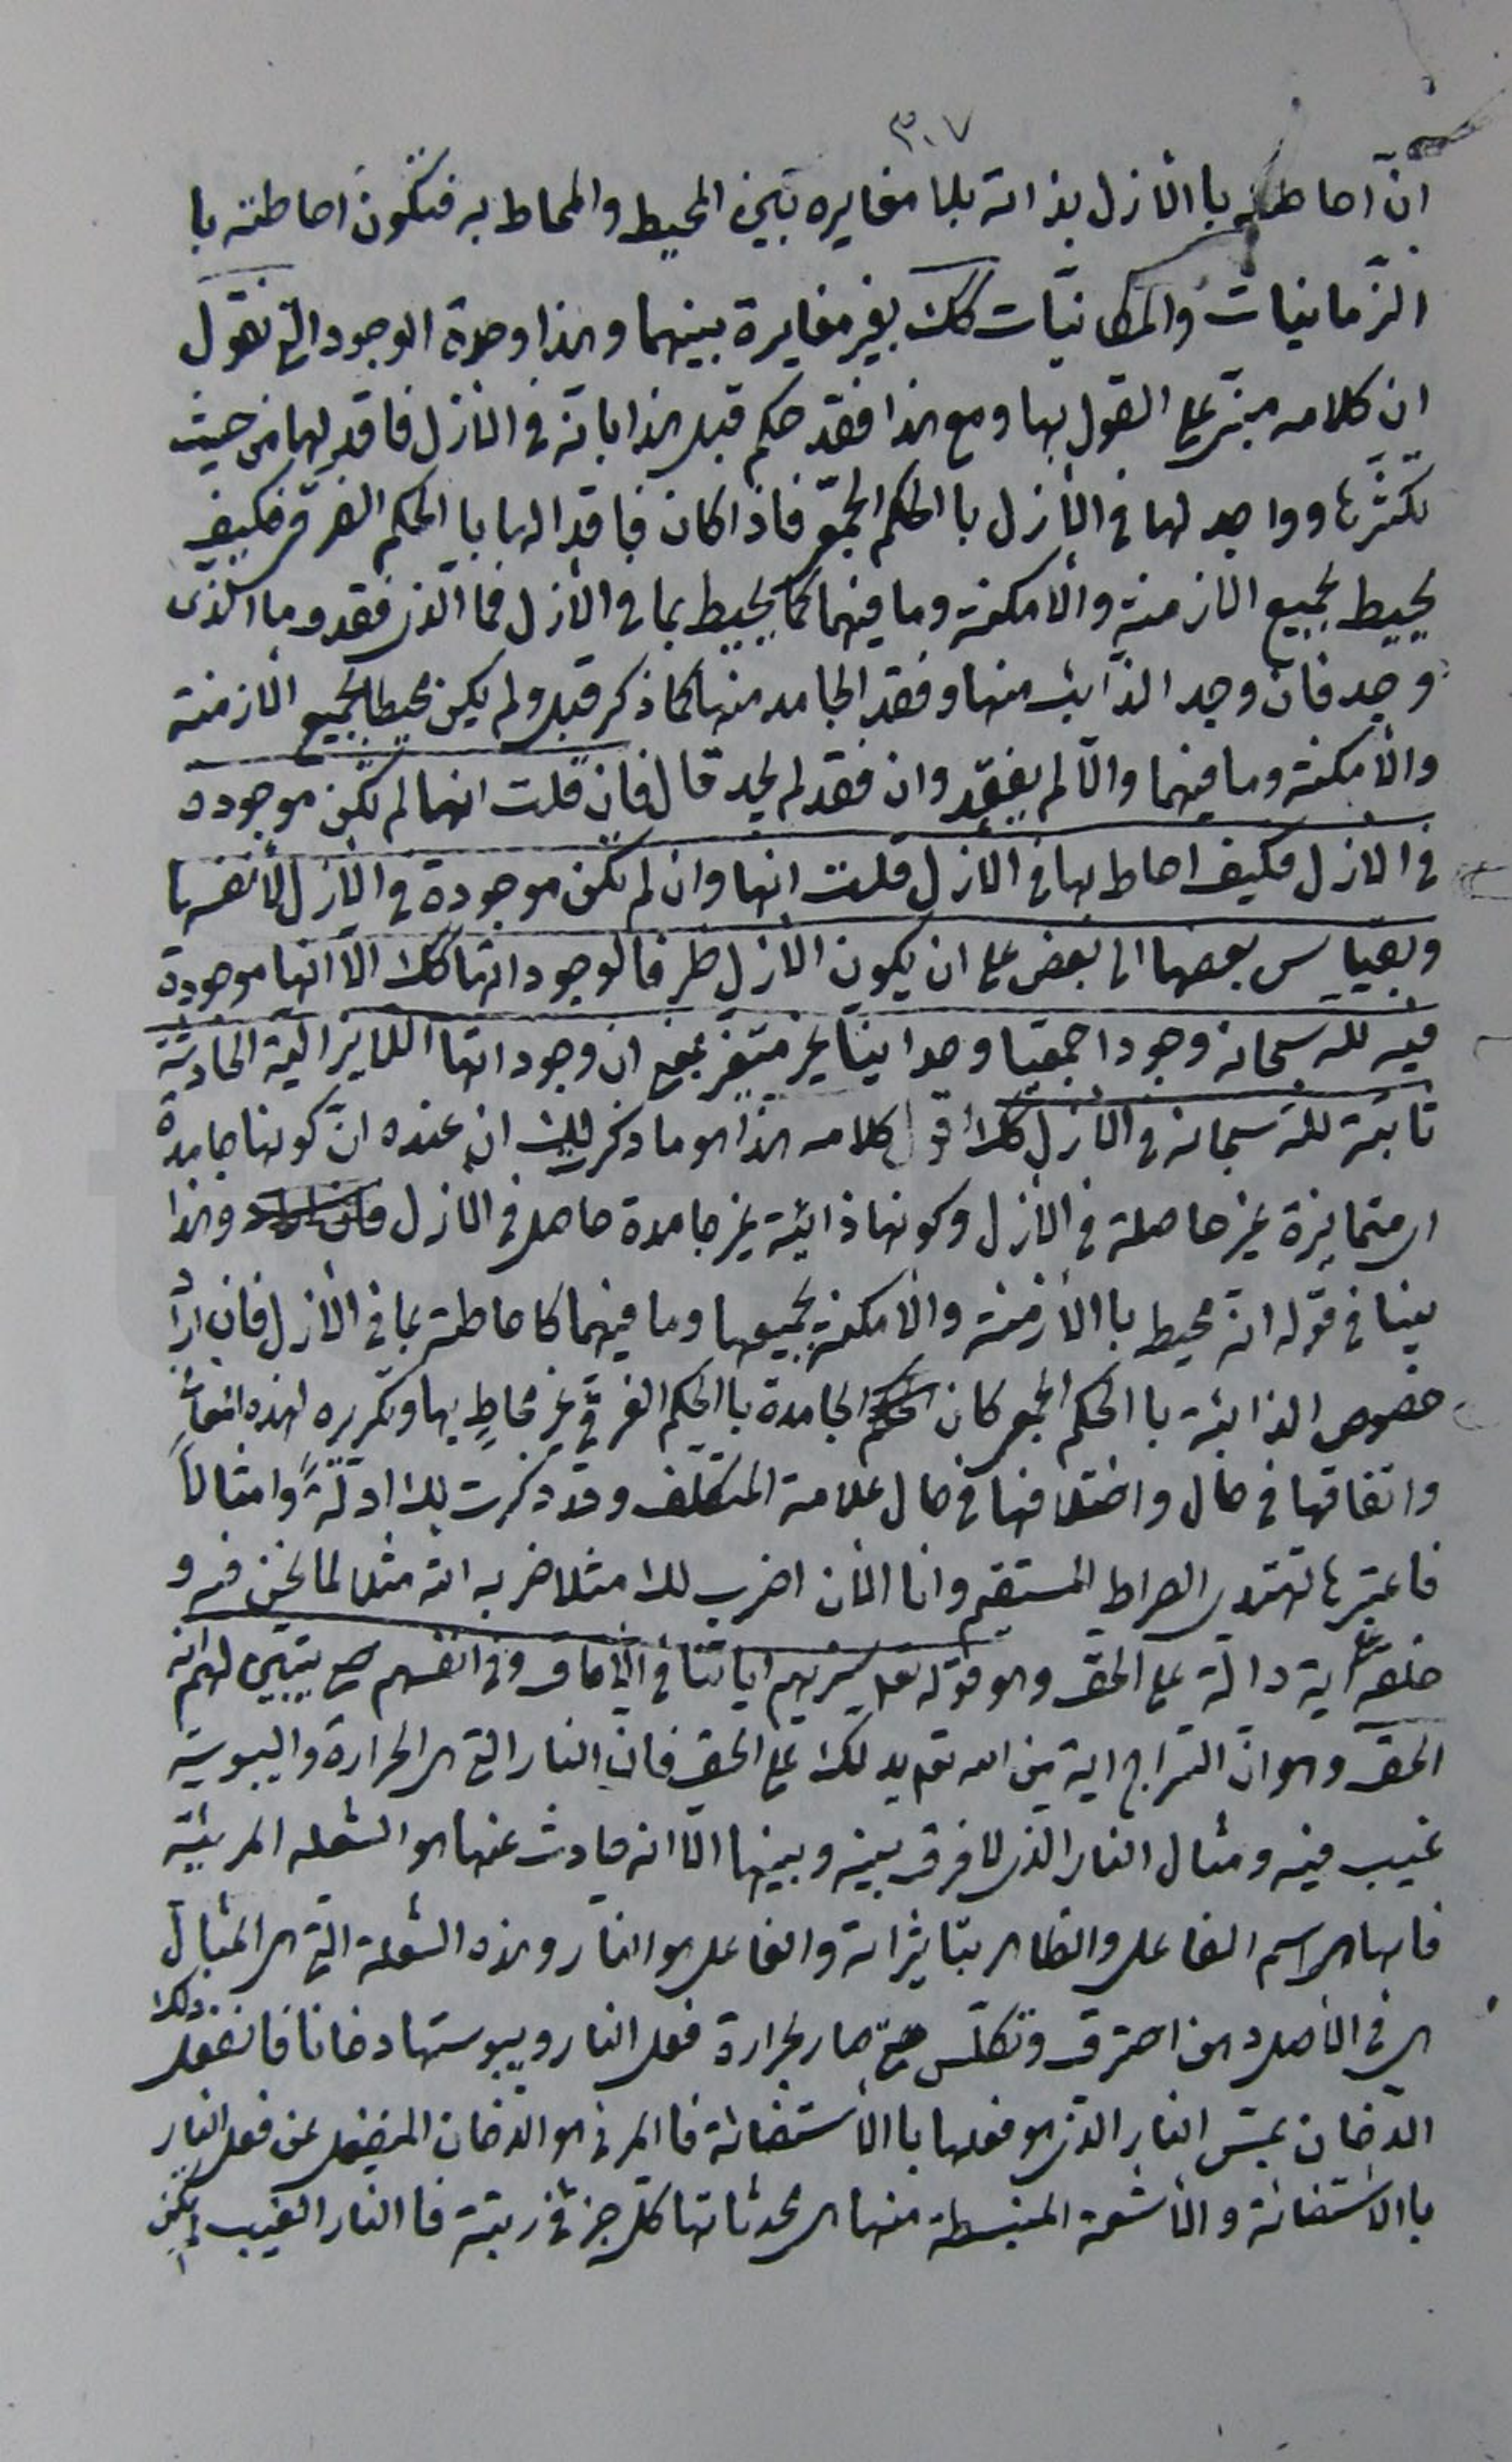 ٣٠٧
انّ احاطته باالأزل بذاته بلا مغايره بين المحيط والمحاط به فتكون احاطته با
الزّمانيات والمكانيّات كك بغير مغايرة بينهما وهذا وحدة الوجود التى نقول
ان كلامه مبنىّ على القول بها ومع هذا فقد حكم قبل هذا بانه فى الازل فاقد لها من حيث
تكثّرها وواجد لها فى الأزل باالحكم الجمعىّ فاذا كان فاقدا لها باالحكم الفرقى فكيف
يحيط بجميع الازمنة والأمكنة وما فيهما كما يحيط بما فى الأزل فما الذى فقد وما الذى
وجد فان وجد الذائب منها وفقد الجامد منها كما ذكر قبل ولم يكن محيطا بجميع الأزمنة
والأمكنة وما فيهما والّا لم يفقد وان فقد لم يجد قال فان قلت انها لم تكن موجودة
فى الازل فكيف احاط بها فى الأزل قلت انها وان لم تكن موجودة فى الأزل لأنفسها
وبقياس بعضها الى بعض على ان يكون الأزل ظرفا لوجوداتها كك الّا انها موجودة
فيه لله سبحانه وجودا جمعيّا وحدانيّا غير متغير بمعنى ان وجوداتها اللايزالية الحادثة
ثابتة لله سبحانه فى الأزل كك اقول كلامه هذا هو ما ذكر لك ان عنده انّ كونها جامدة
اى متمايزة غير حاصلة فى الأزل وكونها ذائبة غير جامدة حاصل فى الازل وهذا
ينافى قوله انه محيط باالأزمنة والأمكنة بجميعها وما فيهما كاحاطته بما فى الأزل فان اراد
خصوص الذائبة باالحكم الجمعى كان الجامدة باالحكم الفرقى غير محاطٍ بها وتكريره لهذه
واتفاقها فى حال واختلافها فى حال علامة المتكلّف وقد ذكرت لك ادلّةً وامثالاً
فاعتبرها تهتدى الصراط المستقيم وانا الأن اضرب لك مثلا ضربه الله مثلا لما نحن فيه و
خلقه آية دالة على الحق وهو قوله تعلى سنريهم اياتنا فى الآفاق وفى انفسهم حتى يتبين لهم انه
الحق وهو انّ السّراج اية من الله تعم يدلك على الحق فان النار التى هى الحرارة واليبوسة
غيب فيه ومثال النار الذى لا فرق بينه وبينها الّا انه حادث عنها هو الشعله المرئيّة
فانها هى اسم الفاعل والظاهر بتأثيراته والفاعل هو النار وهذه الشعلة التى هى المثال
هى فى الأصل دهن احترق وتكلّس حتى صار بحرارة فعل النار ويبوستها دخانا فانفعل ذلك
الدّخان بمسّ النار الذى هو فعلها باالأستضائة فاالمرئى هو الدّخان المنفعل عن فعل النار
باالاستضائة والأشعة المنبسطة منها هى محدثاتها كل جزء فى رتبة فاالنار الغيب لم يكن